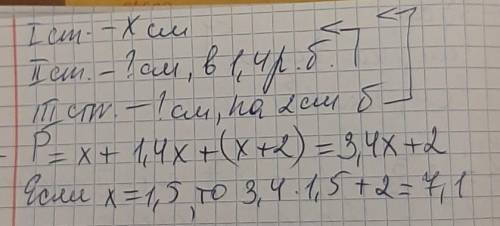 I ст. - x см
II ст. - ? см, в 1,4 р. б.
III ст. - ? см, на 2 см б
P = x + 1,4x + (x + 2) = 3,4x + 2
Если x = 1,5, то 3,4 · 1,5 + 2 = 7,1